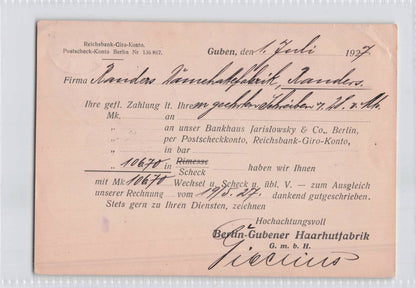 Reichsbank-Giro-Konto.
Postscheck-Konto Berlin Nr 136 867.
Guben, den 1. Juli 1927
Firma Randers Damehatfabrik, Randers.
Ihre gefl. Zahlung lt. Ihrem geehrten Schreiben v.
Mk. an
„ an unser Bankhaus Jarislowsky & Co., Berlin,
„ per Postscheckkonto, Reichsbank-Giro-Konto,
„ in bar
„ 10670 Rimesse
Scheck haben wir Ihnen
mit Mk 10670 Wechsel u. Scheck u. übl. V. — zum Ausgleich
unserer Rechnung vom 19.5.27. dankend gutgeschrieben.
Stets gern zu Ihren Diensten, zeichnen
Hochachtungsvoll
Berlin-Gubener Haarhutfabrik
G. m. b. H.